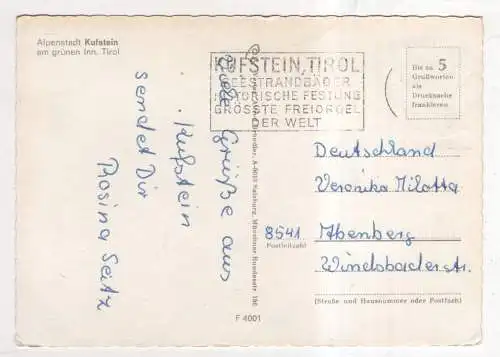 Alpenstadt Kufstein
am grünen Inn. Tirol
KUFSTEIN, TIROL
SEESTRANDBÄDER
HISTORISCHE FESTUNG
GRÖSSTE FREIORGEL
DER WELT
Bis zu 5
Grußworten
als
Drucksache
frankieren
Viele Grüße aus
Kufstein
sendet Dir
Rosina Seitz
A-5033 Salzburg, Münchner Bundesstr. 156
Deutschland
Veronika Milotta
8541 Abenberg
Postleitzahl
Windsbacherstr.
(Straße und Hausnummer oder Postfach)
F 4001